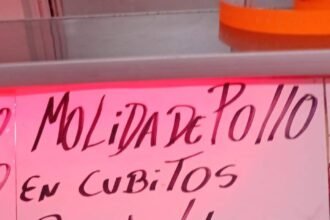 MOLIDA DE POllO
EN CUBITOS